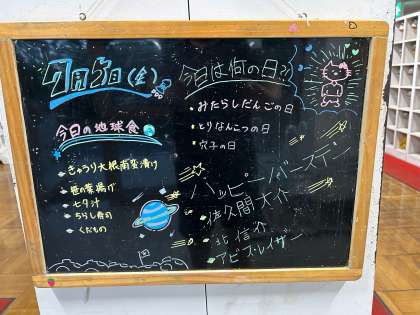 7月5日(金)
今日の地球食
きゅうり大根南蛮漬け
笹の葉揚げ
七夕汁
ちらし寿司
くだもの
今日は何の日??
・みたらしだんごの日
・とりなんこつの日
・穴子の日
ハッピーバースデー
佐久間大介
北 信介
アビス・レイザー